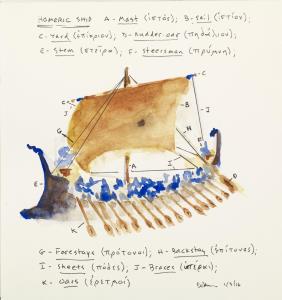 HOMERIC SHIP A - Mast (ἱστός); B - Sail (ἱστίον);
C - Yard (ἐπίκριον); D - Rudder-oar (πηδάλιον);
E - Stem (στεῖρα); F - Steersman (πρύμνη);
C
C
J
B
J
G
H
A
F
I
E
D
K
G - Forestays (πρότονοι); H - Backstay (ἐπίτονος);
I - Sheets (πόδες); J - Braces (ὑπέραι);
K - Oars (ἐρετμοί)